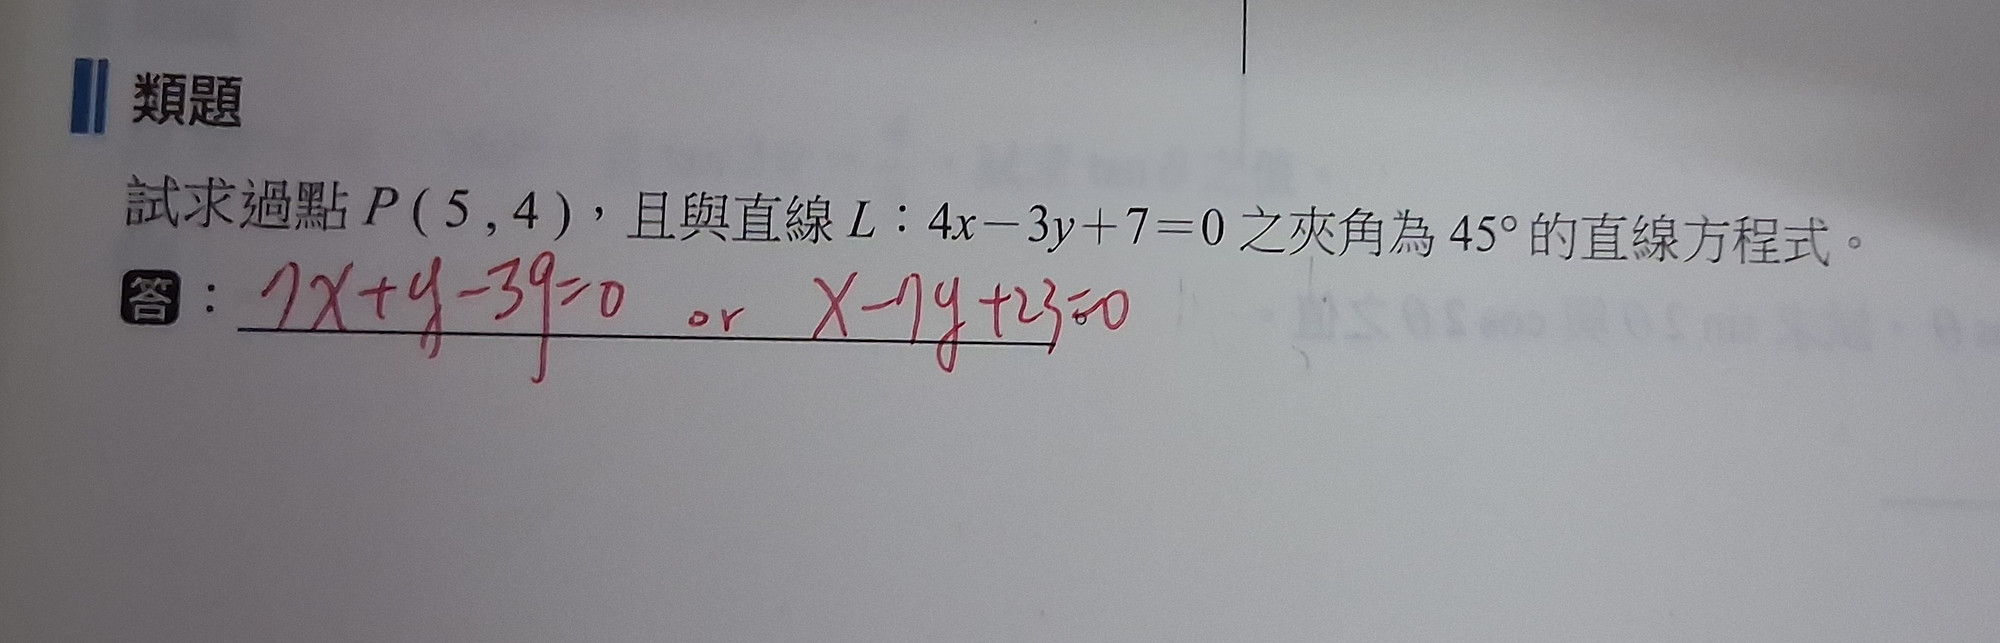 類題
試求過點 P(5,4)，且與直線 L：4x－3y＋7＝0 之夾角為 45° 的直線方程式。
答：7x+y-39=0 or x-7y+23=0